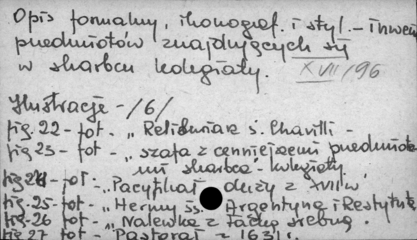 Opis formalny, ikonograf. i styl. – inwen
przedmiotów znajdujących się
w skarbcu kolegiaty.
XVII/96
Ilustracje - /6/
fig. 22 - fot - „Relikwiarz ś.
fig 23 - fot. - „szafa z cenniejszemi przedmiota
mi skarbca" - kolegiaty
fig 24 - fot - „Pacyfikał duży z XVII w.
fig. 25 - fot - „Hermy śś. Argentyna i Restytuta
fig. 26 - fot - „Nalewka z tacką srebrną.
fig 27 fot - Pastorał z 1631 r.